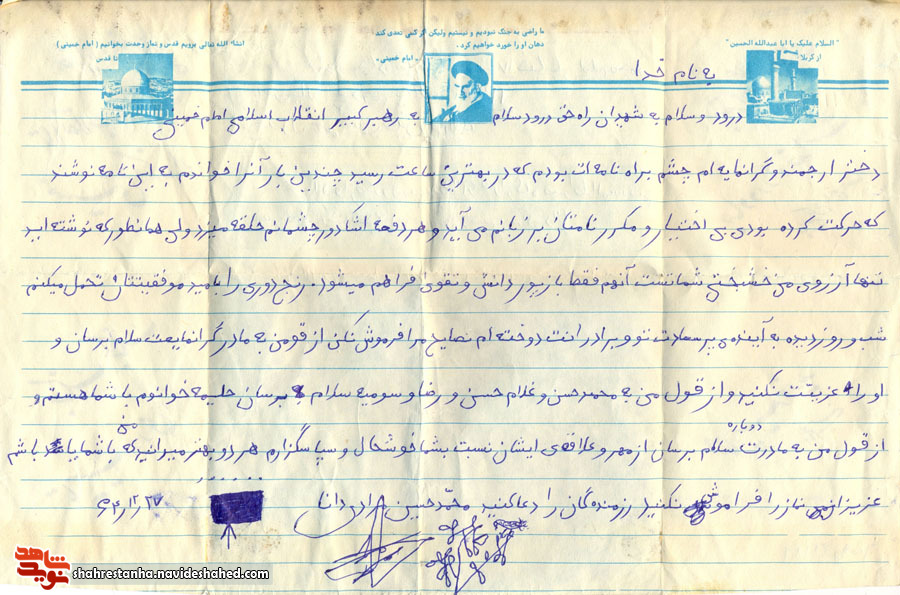 "السلام علیک یا ابا عبدالله الحسین"
از کربلا
ما راضی به جنگ نبودیم و نیستیم ولیکن اگر کسی تعدی کند
دهان او را خورد خواهیم کرد.
امام خمینی.
انشاء الله تعالی برویم قدس و نماز وحدت بخوانیم (امام خمینی)
تا قدس
به نام خدا
درود و سلام به شهیدان راه حق درود سلام به رهبر کبیر انقلاب اسلامی امام خمینی
دختر ارجمند و گرانمایه ام چشم براه نامه ات بودم که در بهترین ساعت رسید چندین بار آنرا خواندم به این نامه نوشتند
که حرکت کرده بودی بی اختیار و مکرر نامتان بر زبانم می آید و هر دفعه اشک دور چشمانم حلقه میزد ولی همانطور که نوشته اید
تنها آرزوی من خشبختی شماتشت آنهم فقط با زیور دانش و تقوی فراهم میشود. رنج دوری را بامید موفقیتتان تحمل میکنم
شب و روز دیده به آینده ی پر سعادت تو و برادرانت دوخته ام نصایح مرا فروش نکن از قو من به مادر گرانمایعت سلام برسان و
او را عزیتت نکنید و از قول من به محمد حسن و غلام حسن و رضا و سومیه سلام برسان حلیمه خوانوم با شما هستم و
از قول من به مادرت دوباره سلام برسان از مهر و علاقه ی ایشان نسبت بشما خوشحال و سپاسگزارم هر دو بهتر میدانید که با شما باشم
عزیزانم نماز را فراموش نکنید رزمنده گان را دعا کنید محمد حسین مرادی دانا
۶۴/۱۲/۲۷
شاهد
نوید
shahrestanha.navideshahed.com